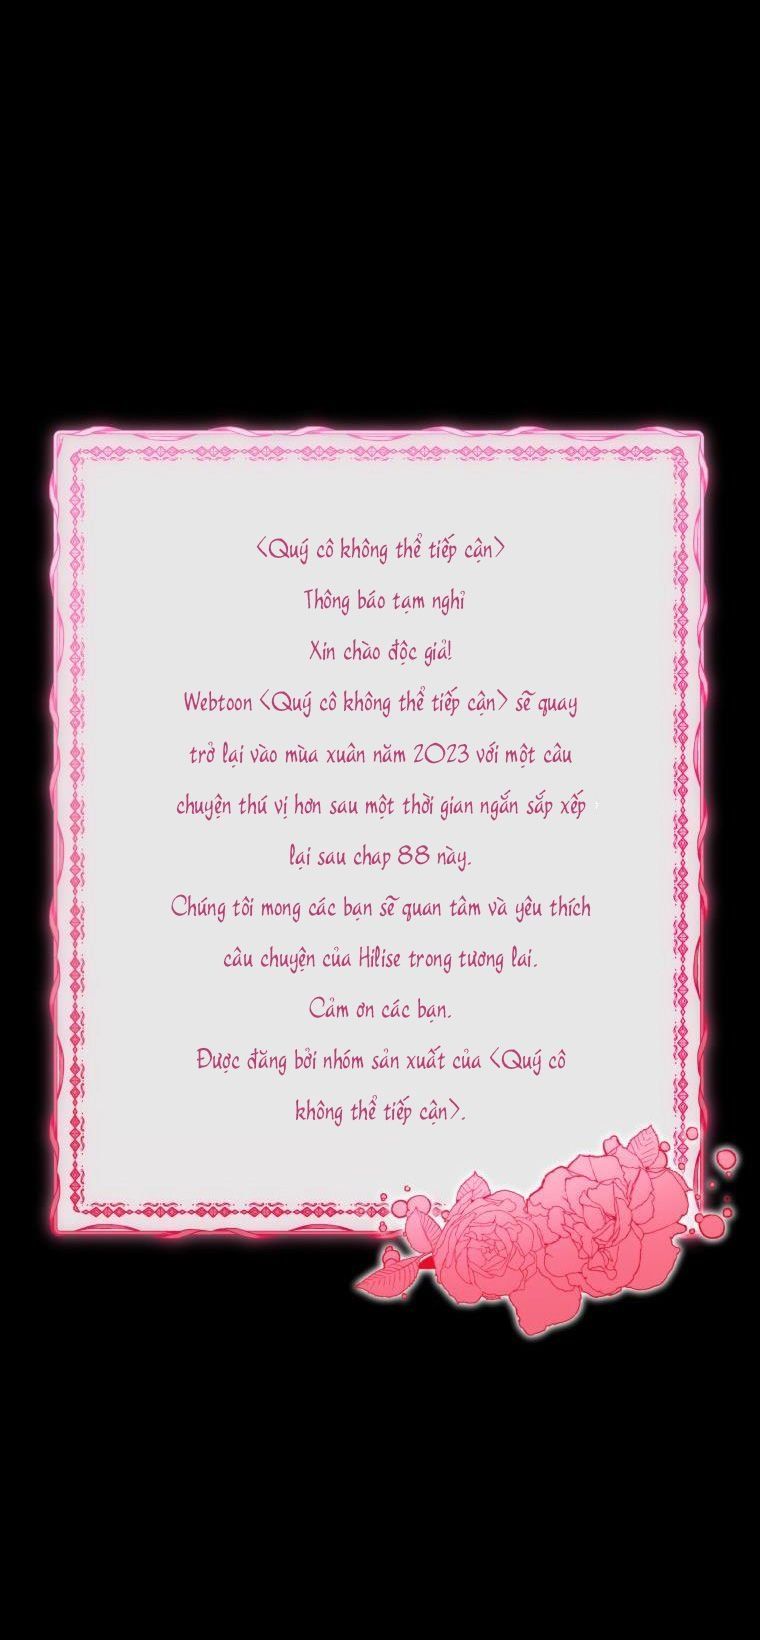 <Quý cô không thể tiếp cận>
Thông báo tạm nghỉ
Xin chào độc giả!
Webtoon <Quý cô không thể tiếp cận> sẽ quay
trở lại vào mùa xuân năm 2023 với một câu
chuyện thú vị hơn sau một thời gian ngắn sắp xếp
lại sau chap 88 này.
Chúng tôi mong các bạn sẽ quan tâm và yêu thích
câu chuyện của Hilise trong tương lai.
Cảm ơn các bạn.
Được đăng bởi nhóm sản xuất của <Quý cô
không thể tiếp cận>.